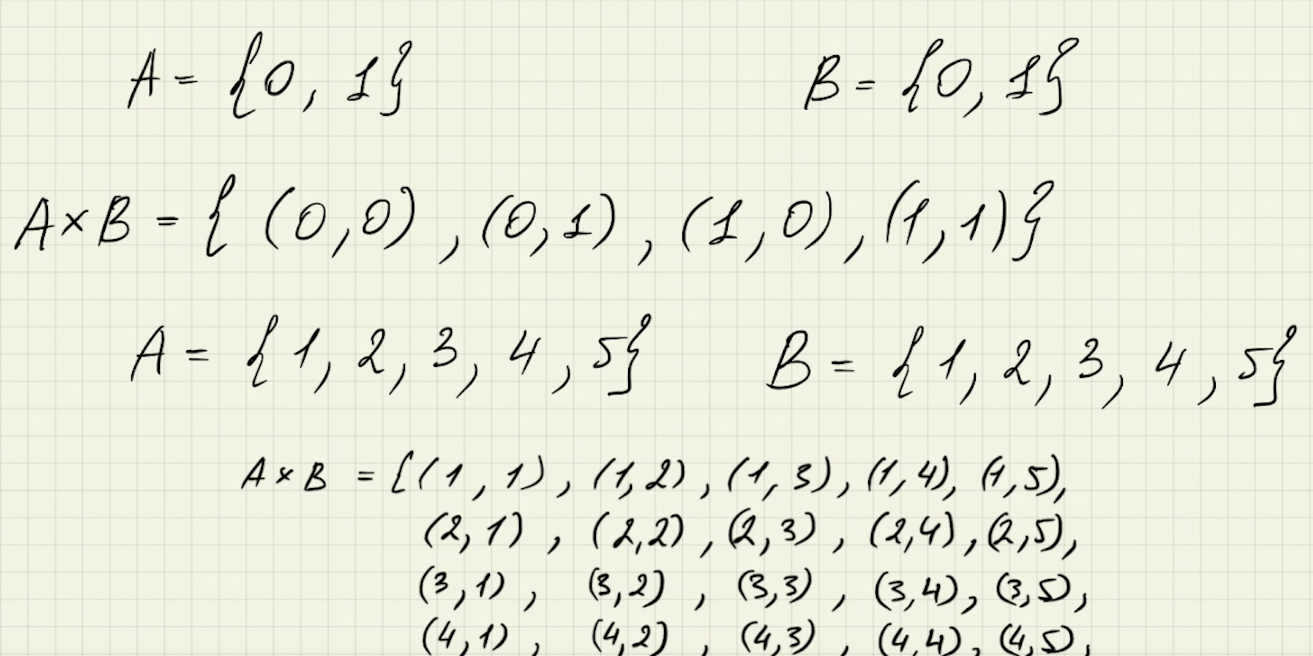 A = {0, 1} B = {0, 1}
A×B = { (0,0) , (0,1) , (1,0) , (1,1)}
A = {1, 2, 3, 4, 5} B = {1, 2, 3, 4, 5}
A×B = {(1,1), (1,2), (1,3), (1,4), (1,5),
(2,1) , (2,2) , (2,3) , (2,4) , (2,5),
(3,1) , (3,2) , (3,3) , (3,4), (3,5),
(4,1) , (4,2) , (4,3) , (4,4), (4,5),